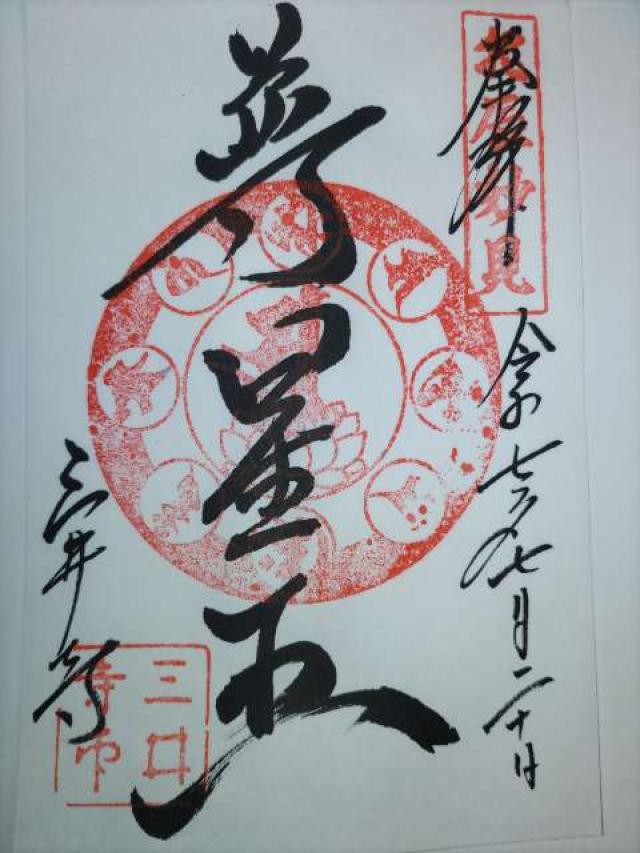 奉拝
妙見
令和七年七月二十日
尊星王
三井寺
三井
寺印